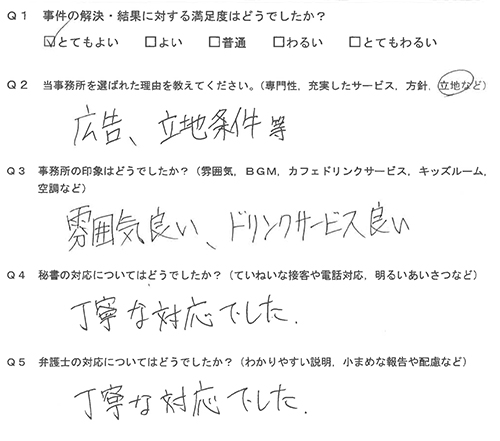 Q1 事件の解決・結果に対する満足度はどうでしたか？
☑とてもよい □よい □普通 □わるい □とてもわるい
Q2 当事務所を選ばれた理由を教えてください。（専門性，充実したサービス，方針，立地など）
広告、立地条件等
Q3 事務所の印象はどうでしたか？（雰囲気，BGM，カフェドリンクサービス，キッズルーム，
空調など）
雰囲気良い、ドリンクサービス良い
Q4 秘書の対応についてはどうでしたか？（ていねいな接客や電話対応，明るいあいさつなど）
丁寧な対応でした.
Q5 弁護士の対応についてはどうでしたか？（わかりやすい説明，小まめな報告や配慮など）
丁寧な対応でした.